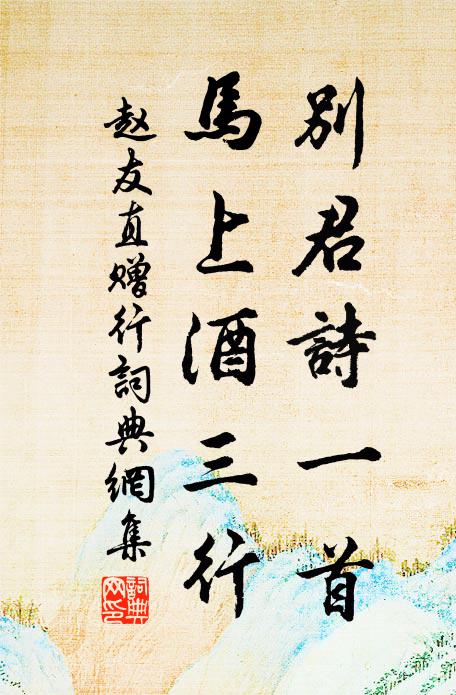 別君詩一首
馬上酒三行
赵友直赠行詞典網集
詞典